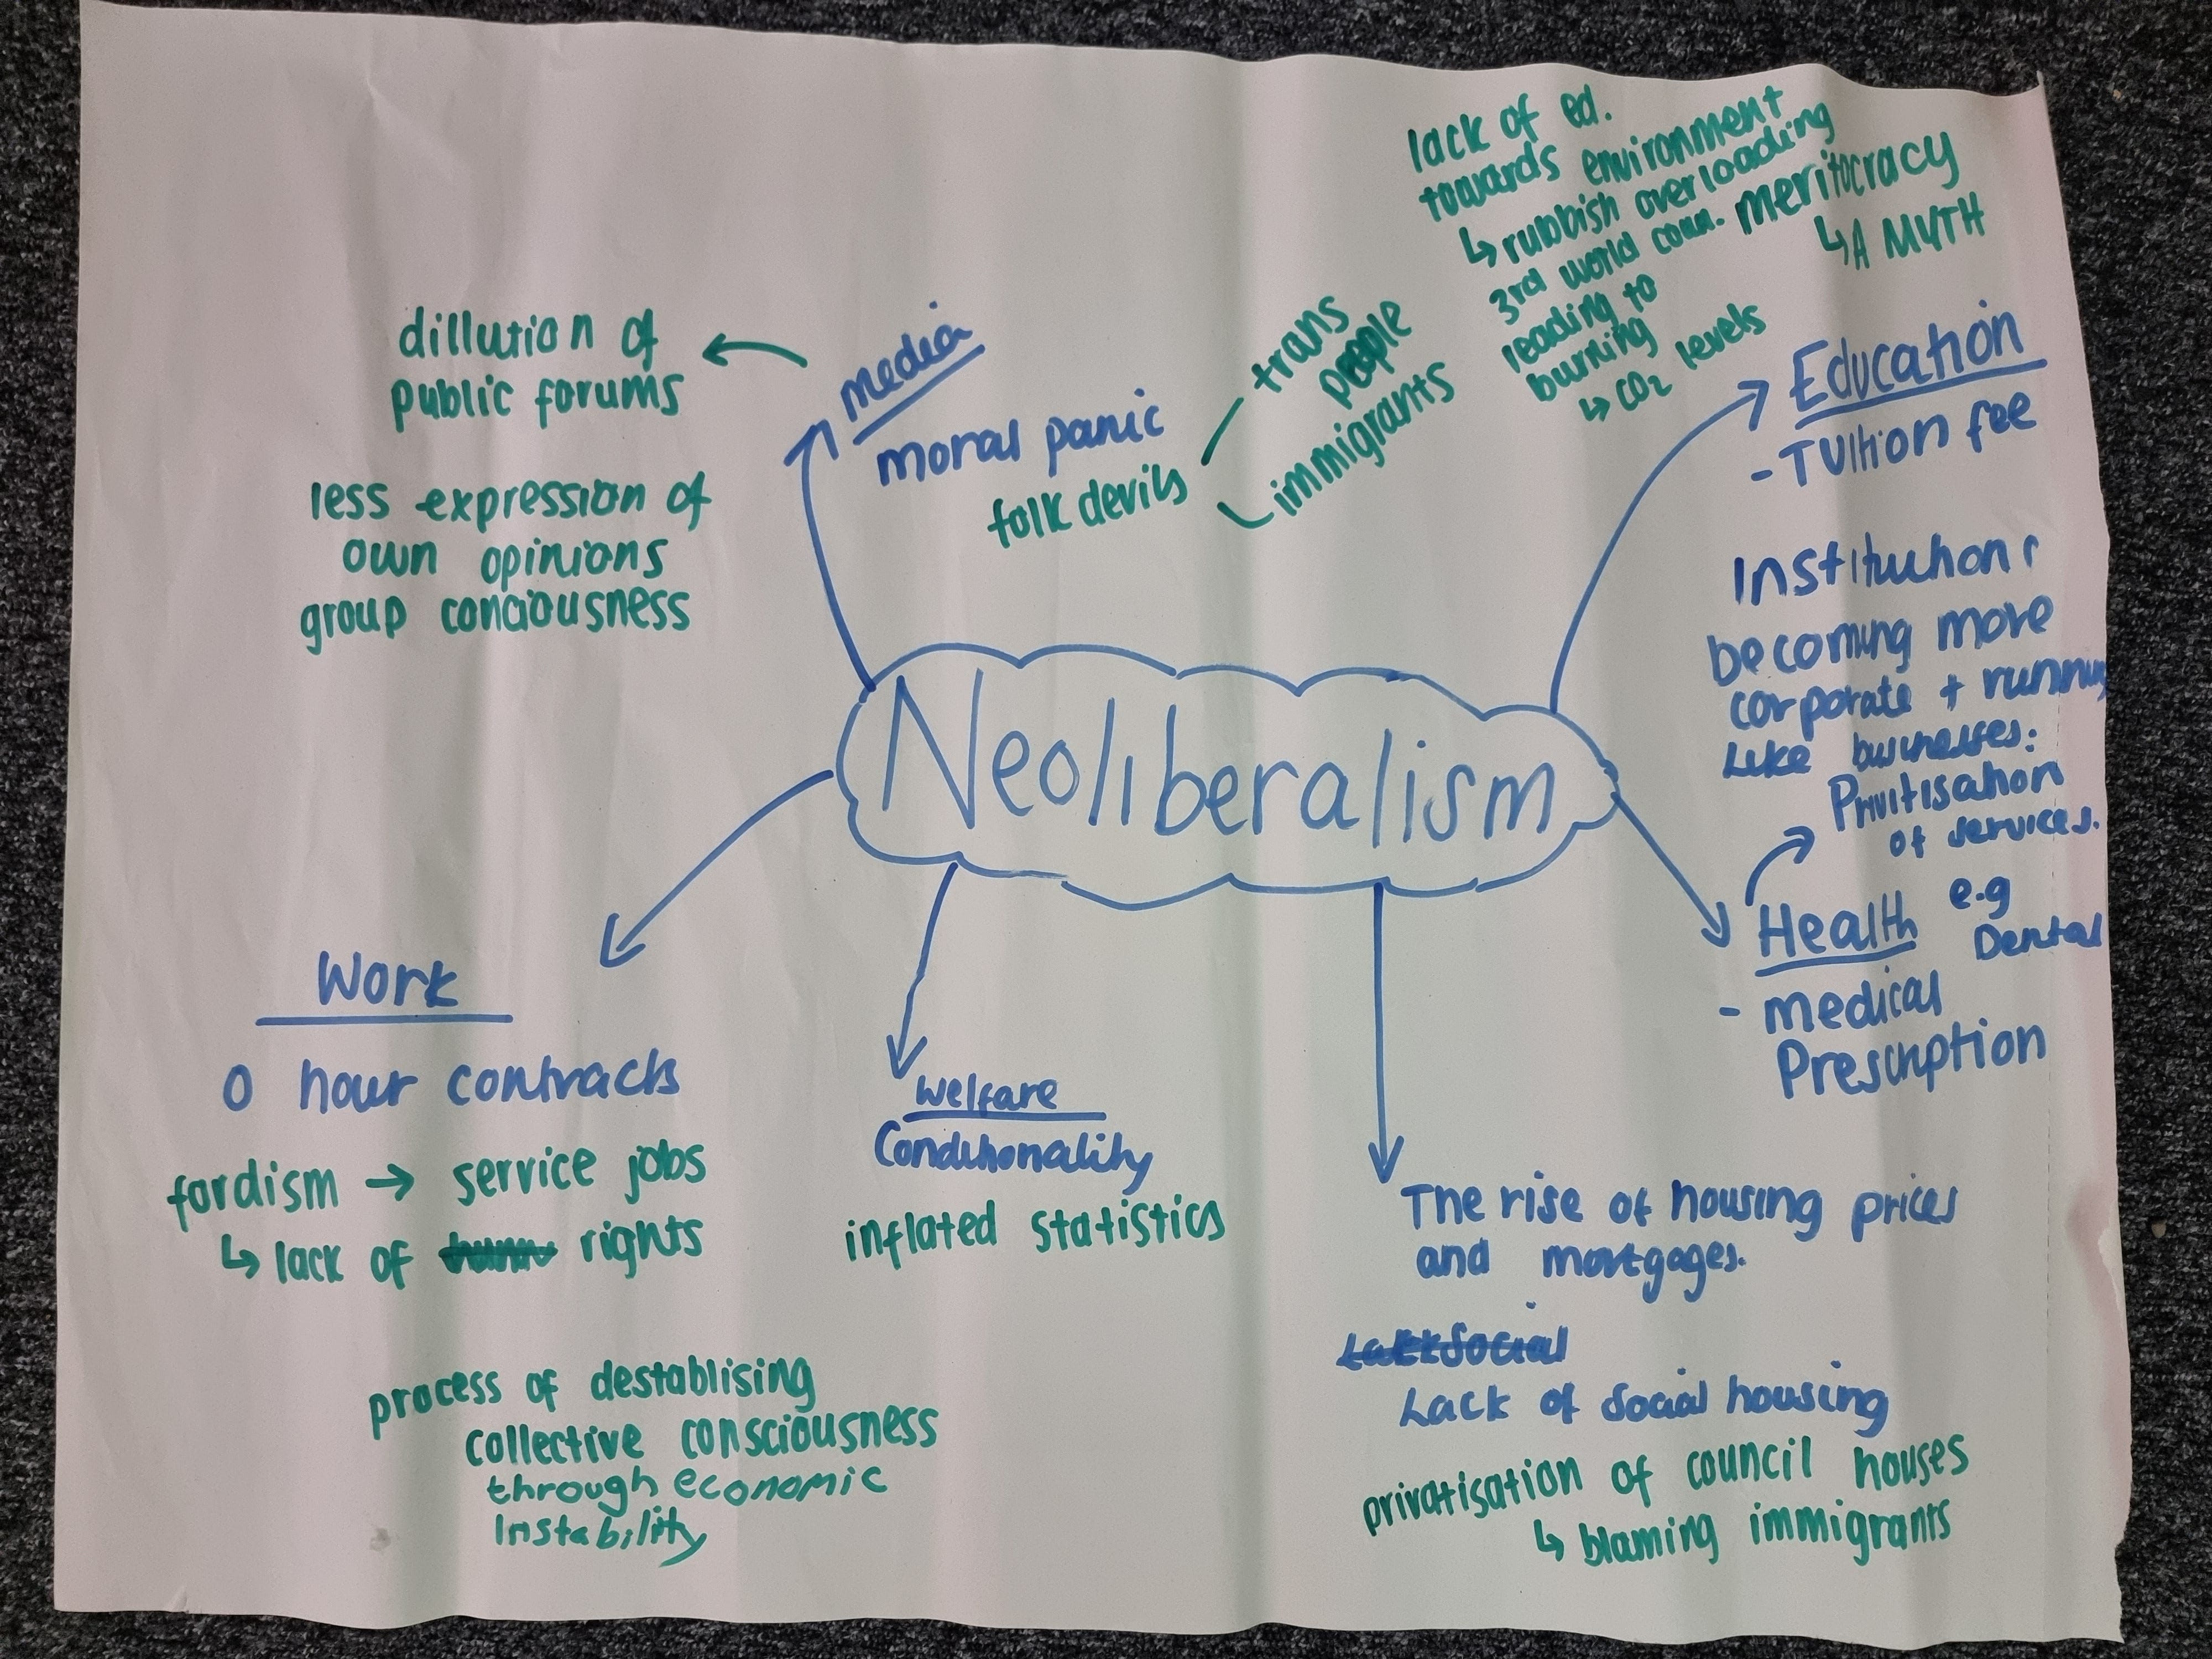 Neoliberalism
media
moral panic
folk devils
trans
people
immigrants
dillution of
public forums
less expression of
own opinions
group conciousness
lack of ed.
towards environment
↳ rubbish overloading
3rd world coun.
leading to
burning
↳ CO2 levels
meritocracy
↳ A MYTH
Education
- Tuition fee
Institutions
becoming more
corporate + running
Like businesses:
Privitisation
of services.
e.g
Dental
Health
- medical
Prescription
Work
0 hour contracts
fordism → service jobs
↳ lack of rights
process of destablising
collective consciousness
through economic
Instability
Welfare
Conditionality
inflated statistics
The rise of housing prices
and mortgages.
Lack Social
Lack of social housing
privatisation of council houses
↳ blaming immigrants